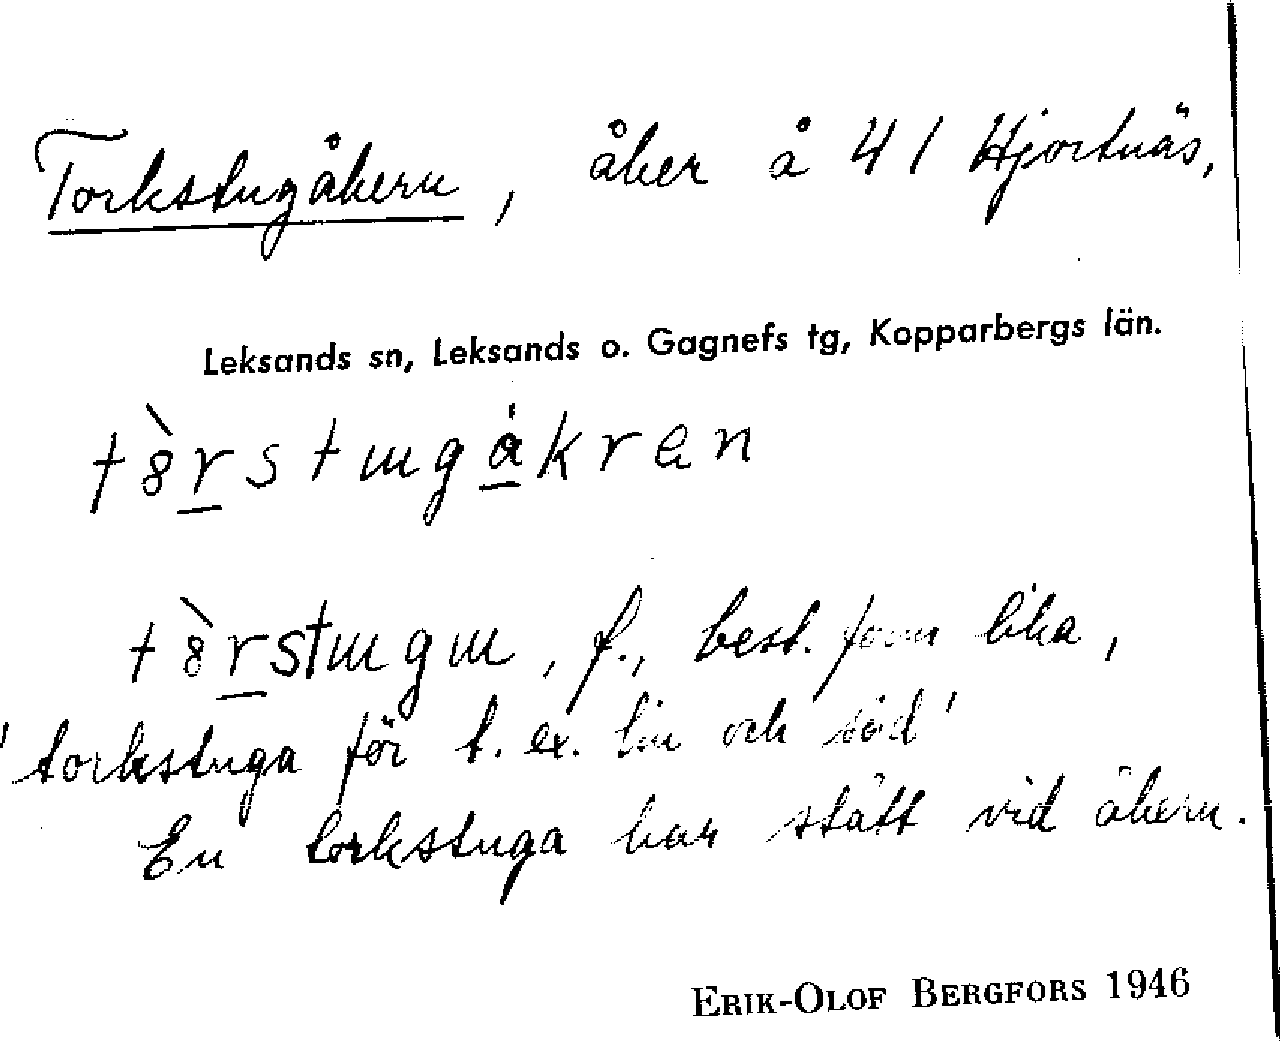 Torkstugåkern, åker å 41 Hjortnäs,
Leksands sn, Leksands o. Gagnefs tg, Kopparbergs län.
t8̀r̲stɯgå̲kren
t8̀r̲stɯgɯ, f., best. form lika,
'torkstuga för t. ex. lin och säd'
En torkstuga har stått vid åkern.
ERIK-OLOF BERGFORS 1946